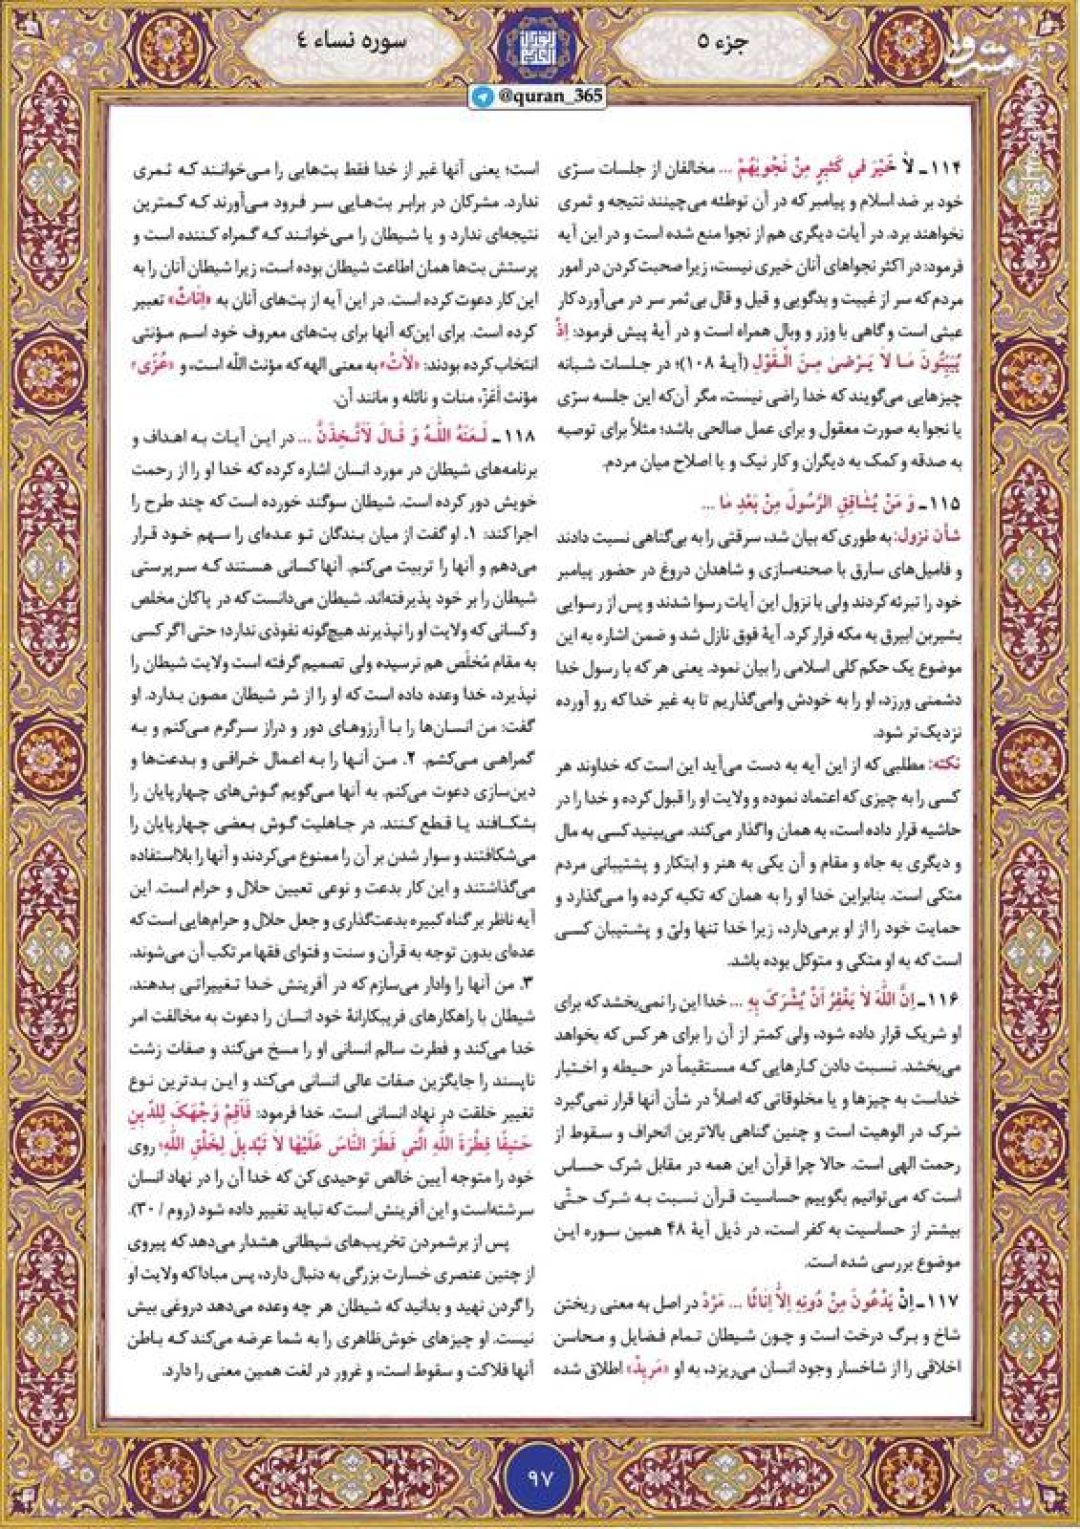 جزء ۵
سوره نساء ٤
@quran_365
۱۱۴ـ لاٰ خَیْرَ فی کَثیرٍ مِنْ نَجْویٰهُمْ ... مخالفان از جلسات سرّی
خود بر ضد اسلام و پیامبر که در آن توطئه می‌چینند نتیجه و ثمری
نخواهند برد. در آیات دیگری هم از نجوا منع شده است و در این آیه
فرمود: در اکثر نجواهای آنان خیری نیست، زیرا صحبت کردن در امور
مردم که سر از غیبت و بدگویی و قیل و قال بی‌ثمر سر در می‌آورد کار
عبثی است و گاهی با وزر و وبال همراه است و در آیهٔ پیش فرمود: اِذْ
یُبَیِّتُونَ مٰا لاٰ یَرْضیٰ مِنَ الْقَوْلِ (آیهٔ ۱۰۸)؛ در جلسات شبانه
چیزهایی می‌گویند که خدا راضی نیست، مگر آن‌که این جلسه سرّی
یا نجوا به صورت معقول و برای عمل صالحی باشد؛ مثلاً برای توصیه
به صدقه و کمک به دیگران و کار نیک و یا اصلاح میان مردم.
۱۱۵ـ وَ مَنْ یُشٰاقِقِ الرَّسُولَ مِنْ بَعْدِ مٰا ...
شأن نزول: به طوری که بیان شد، سرقتی را به بی‌گناهی نسبت دادند
و فامیل‌های سارق با صحنه‌سازی و شاهدان دروغ در حضور پیامبر
خود را تبرئه کردند ولی با نزول این آیات رسوا شدند و پس از رسوایی
بشیربن ابیرق به مکه فرار کرد. آیهٔ فوق نازل شد و ضمن اشاره به این
موضوع یک حکم کلی اسلامی را بیان نمود. یعنی هر که با رسول خدا
دشمنی ورزد، او را به خودش وامی‌گذاریم تا به غیر خدا که رو آورده
نزدیک‌تر شود.
نکته: مطلبی که از این آیه به دست می‌آید این است که خداوند هر
کسی را به چیزی که اعتماد نموده و ولایت او را قبول کرده و خدا را در
حاشیه قرار داده است، به همان واگذار می‌کند. می‌بینید کسی به مال
و دیگری به جاه و مقام و آن یکی به هنر و ابتکار و پشتیبانی مردم
متکی است. بنابراین خدا او را به همان که تکیه کرده وا می‌گذارد و
حمایت خود را از او برمی‌دارد، زیرا خدا تنها ولیّ و پشتیبان کسی
است که به او متکی و متوکل بوده باشد.
۱۱۶ـ اِنَّ اللّٰهَ لاٰ یَغْفِرُ اَنْ یُشْرَکَ بِهِ ... خدا این را نمی‌بخشد که برای
او شریک قرار داده شود، ولی کمتر از آن را برای هر کس که بخواهد
می‌بخشد. نسبت دادن کارهایی که مستقیماً در حیطه و اختیار
خداست به چیزها و یا مخلوقاتی که اصلاً در شأن آنها قرار نمی‌گیرد
شرک در الوهیت است و چنین گناهی بالاترین انحراف و سقوط از
رحمت الهی است. حالا چرا قرآن این همه در مقابل شرک حساس
است که می‌توانیم بگوییم حساسیت قرآن نسبت به شرک حتّی
بیشتر از حساسیت به کفر است، در ذیل آیهٔ ۴۸ همین سوره این
موضوع بررسی شده است.
۱۱۷ـ اِنْ یَدْعُونَ مِنْ دُونِهِ اِلاّٰ اِنٰاثًا ... مَرَدْ در اصل به معنی ریختن
شاخ و برگ درخت است و چون شیطان تمام فضایل و محاسن
اخلاقی را از شاخسار وجود انسان می‌ریزد، به او «مَریدْ» اطلاق شده
است؛ یعنی آنها غیر از خدا فقط بت‌هایی را می‌خوانند که ثمری
ندارد. مشرکان در برابر بت‌هایی سر فرود می‌آورند که کمترین
نتیجه‌ای ندارد و یا شیطان را می‌خوانند که گمراه کننده است و
پرستش بت‌ها همان اطاعت شیطان بوده است، زیرا شیطان آنان را به
این کار دعوت کرده است. در این آیه از بت‌های آنان به «اِنٰاثْ» تعبیر
کرده است. برای این‌که آنها برای بت‌های معروف خود اسم مؤنثی
انتخاب کرده بودند: «لٰاتْ» به معنی الهه که مؤنث الله است، و «عُزّیٰ»
مؤنث اَعَزّ، منات و نائله و مانند آن.
۱۱۸ـ لَعَنَهُ اللّٰهُ وَ قٰالَ لَاَتَّخِذَنَّ ... در این آیات به اهداف و
برنامه‌های شیطان در مورد انسان اشاره کرده که خدا او را از رحمت
خویش دور کرده است. شیطان سوگند خورده است که چند طرح را
اجرا کند: ۱. او گفت از میان بندگان تو عده‌ای را سهم خود قرار
می‌دهم و آنها را تربیت می‌کنم. آنها کسانی هستند که سرپرستی
شیطان را بر خود پذیرفته‌اند. شیطان می‌دانست که در پاکان مخلص
و کسانی که ولایت او را نپذیرند هیچ‌گونه نفوذی ندارد؛ حتی اگر کسی
به مقام مُخْلَص هم نرسیده ولی تصمیم گرفته است ولایت شیطان را
نپذیرد، خدا وعده داده است که او را از شر شیطان مصون بدارد. او
گفت: من انسان‌ها را با آرزوهای دور و دراز سرگرم می‌کنم و به
گمراهی می‌کشم. ۲. من آنها را به اعمال خرافی و بدعت‌ها و
دین‌سازی دعوت می‌کنم. به آنها می‌گویم گوش‌های چهارپایان را
بشکافند یا قطع کنند. در جاهلیت گوش بعضی چهارپایان را
می‌شکافتند و سوار شدن بر آن را ممنوع می‌کردند و آنها را بلااستفاده
می‌گذاشتند و این کار بدعت و نوعی تعیین حلال و حرام است. این
آیه ناظر بر گناه کبیره بدعت‌گذاری و جعل حلال و حرام‌هایی است که
عده‌ای بدون توجه به قرآن و سنت و فتوای فقها مرتکب آن می‌شوند.
۳. من آنها را وادار می‌سازم که در آفرینش خدا تغییراتی بدهند.
شیطان با راهکارهای فریبکارانهٔ خود انسان را دعوت به مخالفت امر
خدا می‌کند و فطرت سالم انسانی او را مسخ می‌کند و صفات زشت
ناپسند را جایگزین صفات عالی انسانی می‌کند و این بدترین نوع
تغییر خلقت در نهاد انسانی است. خدا فرمود: فَاَقِمْ وَجْهَکَ لِلدّینِ
حَنیفًا فِطْرَةَ اللّٰهِ الَّتی فَطَرَ النّٰاسَ عَلَیْهٰا لاٰ تَبْدیلَ لِخَلْقِ اللّٰهِ؛ روی
خود را متوجه آیین خالص توحیدی کن که خدا آن را در نهاد انسان
سرشته‌است و این آفرینش است که نباید تغییر داده شود (روم / ۳۰).
پس از برشمردن تخریب‌های شیطانی هشدار می‌دهد که پیروی
از چنین عنصری خسارت بزرگی به دنبال دارد، پس مبادا که ولایت او
را گردن نهید و بدانید که شیطان هر چه وعده می‌دهد دروغی بیش
نیست. او چیزهای خوش‌ظاهری را به شما عرضه می‌کند که باطن
آنها فلاکت و سقوط است، و غرور در لغت همین معنی را دارد.
۹۷